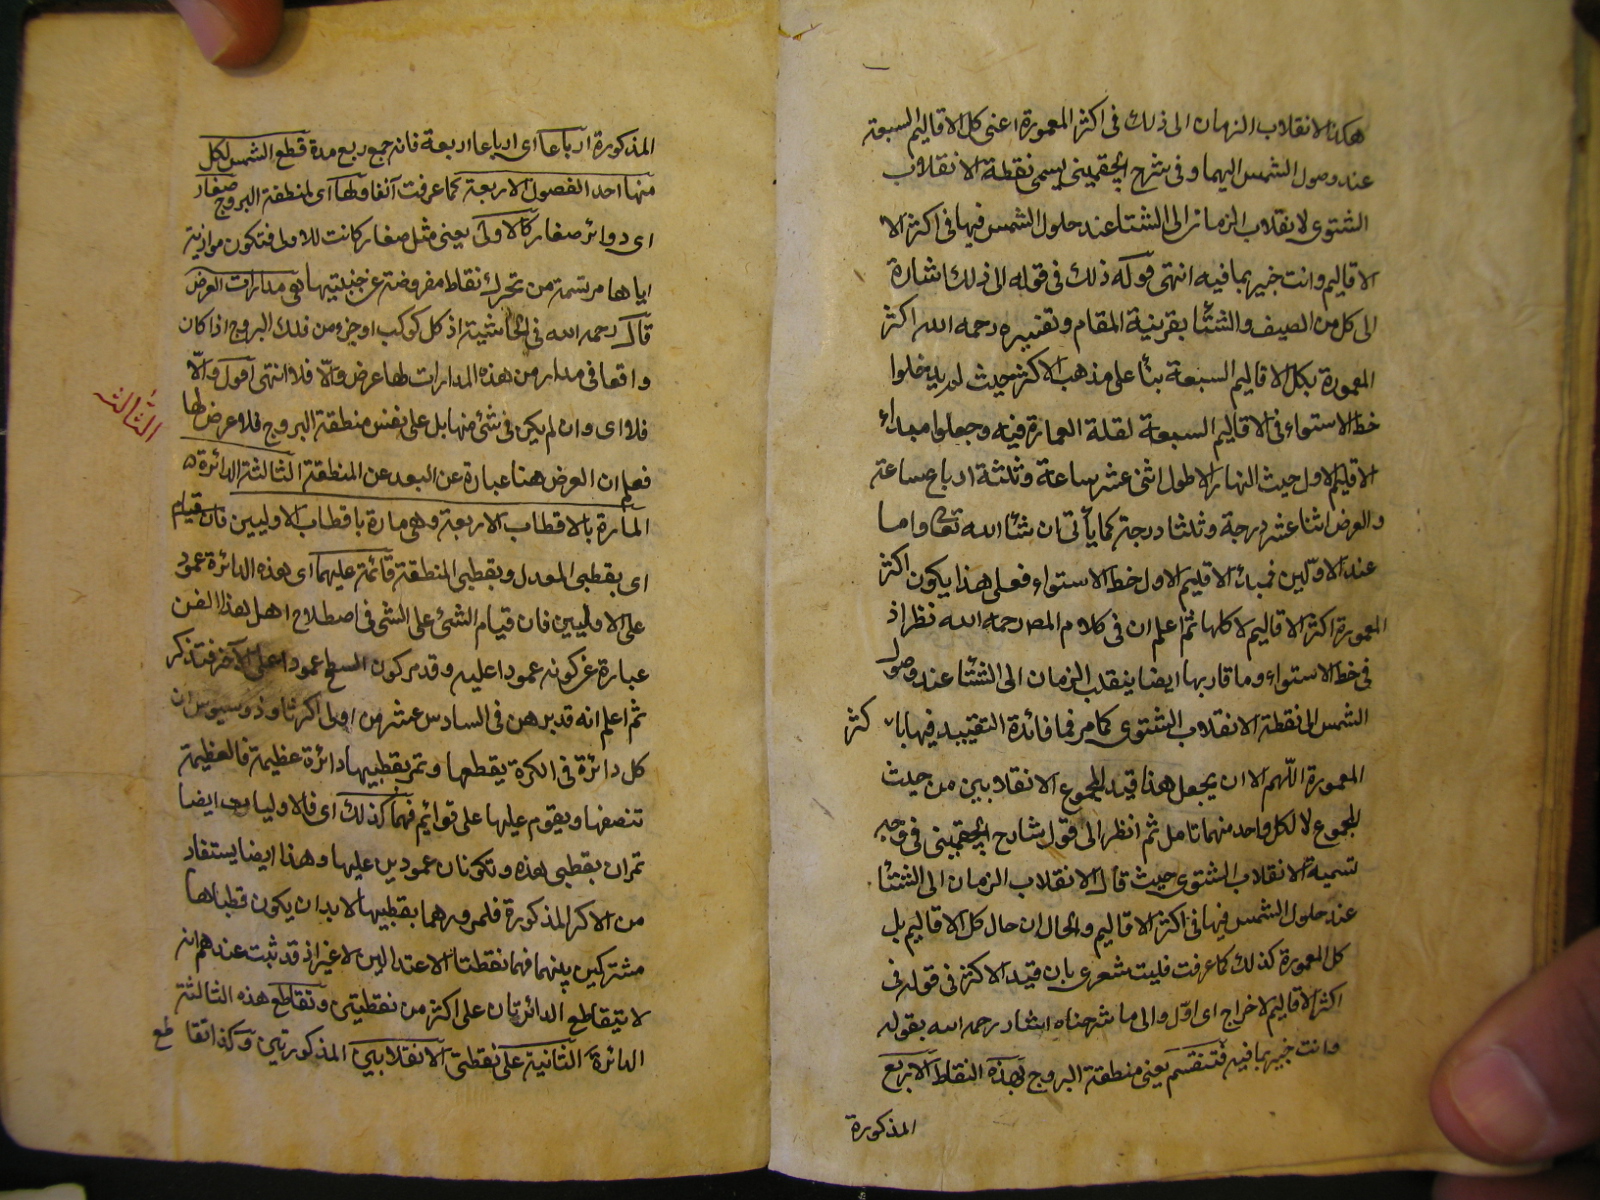 هكذا الانقلاب الزمان الى ذلك فى اكثر المعمورة اعنى كل الاقاليم السبعة
عند وصول الشمس اليهما وفى شرح الچغمينى يسمى نقطة الانقلاب
الشتوى لانقلاب الزمان الى الشتا عند حلول الشمس فيها فى اكثر الا
الاقاليم وانت خبير بما فيه انتهى قوله ذلك فى قوله الى ذلك اشارة
الى كل من الصيف والشتا بقرينة المقام وتفسيره رحمه الله اكثر
المعمورة بكل الاقاليم السبعة بنا على مذهب الاكثر حيث لم يدخلوا
خط الاستواء فى الاقاليم السبعة لقلة العمارة فيه وجعلوا مبداء
الاقليم الاول حيث النهار الاطول اثنى عشر ساعة وثلثة ارباع ساعة
والعرض اثنا عشر درجة وثلثا درجة كما يأتى ان شا الله تعا واما
عند الاولين فمبداء الاقليم الاول خط الاستواء فعلى هذا يكون اكثر
المعمورة اكثر الاقاليم لا كلها ثم اعلم ان فى كلام المص رحمه الله نظر اذ
فى خط الاستواء وما قاربها ايضا ينقلب الزمان الى الشتا عند وصول
الشمس الى نقطة الانقلاب الشتوى كما مر فما فائدة التقييد فيها باكثر
المعمورة اللهم الا ان يجعل هذا قيد المجموع الانقلابين من حيث
المجموع لا لكل واحد منهما تامل ثم انظر الى قول شارح الچغمينى فى وجه
تسمية الانقلاب الشتوى حيث قال الانقلاب الزمان الى الشتا
عند حلول الشمس فيها فى اكثر الاقاليم والحال ان حال كل الاقاليم بل
كل المعمورة كذلك كما عرفت فليت شعرى بان قيد الاكثر فى قوله فى
اكثر الاقاليم لاخراج اى اول والى ما شرحناه اشار رحمه الله بقوله
وانت خبير بما فيه فتنقسم يعنى منطقة البروج بهذه النقاط الاربع
المذكورة
المذكورة ارباعا اى ارباعا اربعة فانه جميع ربع مدة قطع الشمس لكل
منها احد الفصول الاربعة كما عرفت آنفا ولها اى لمنطقة البروج صغار
اى دوائر صغار كالاولى يعنى مثل صغار كانت للاولى فتكون موازية
اياها مرتسمة من تحرك نقاط مفروضة عن جنبتيها هى مدارات العرض
قال رحمه الله فى الحاشية اذ كل كوكب او جزء من فلك البروج اذا كان
واقعا فى مدار من هذه المدارات لها عرض والا فلا انتهى اقول والا
فلا اى وان لم يكن فى شئ منها بل على نفس منطقة البروج فلا عرض لها
الثالث
فعلم ان العرض هنا عبارة عن البعد عن المنطقة الثالثة الدائرة
المارة بالاقطاب الاربعة وهى مارة باقطاب الاوليين فان قيام
اى بقطبى المعدل وبقطبى المنطقة قائمة عليهما اى هذه الدائرة عمود
على الاوليين فان قيام الشئ على الشى فى اصطلاح اهل هذا الفن
عبارة عن كونه عمودا عليه وقد مر كون السطح عمودا على الآخر فتذكر
ثم اعلم انه قد برهن فى السادس عشر من اولى اكر ثاوذوسيوس ان
كل دائرة فى الكرة يقطعها وتمر بقطبيها دائرة عظيمة فالعظيمة
تنصفها ويقوم عليها على قوائم فهما كذلك اى فالاوليان ايضا
تمران بقطبى هذه وتكونان عمودين عليها وهذا ايضا يستفاد
من الاكر المذكورة فلمرورهما بقطبيها لابد ان يكون قطباها
مشتركين بينهما فهما نقطتا الاعتدالين لا غير اذ قد ثبت عندهم انه
لا يتقاطع الدائرتان على اكثر من نقطتين وتقاطع هذه الثالثة
الدائرة الثانية على نقطتى الانقلابين المذكورتين وكذا تقاطع